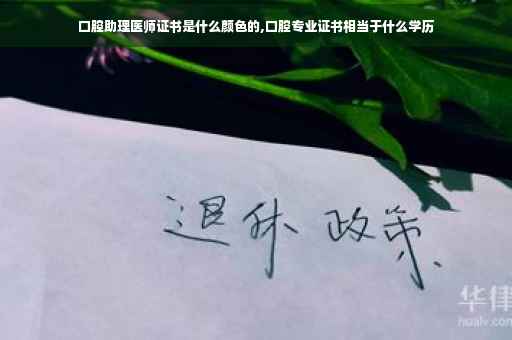 口腔助理医师证书是什么颜色的,口腔专业证书相当于什么学历
退休 政策
华律
hualv.com